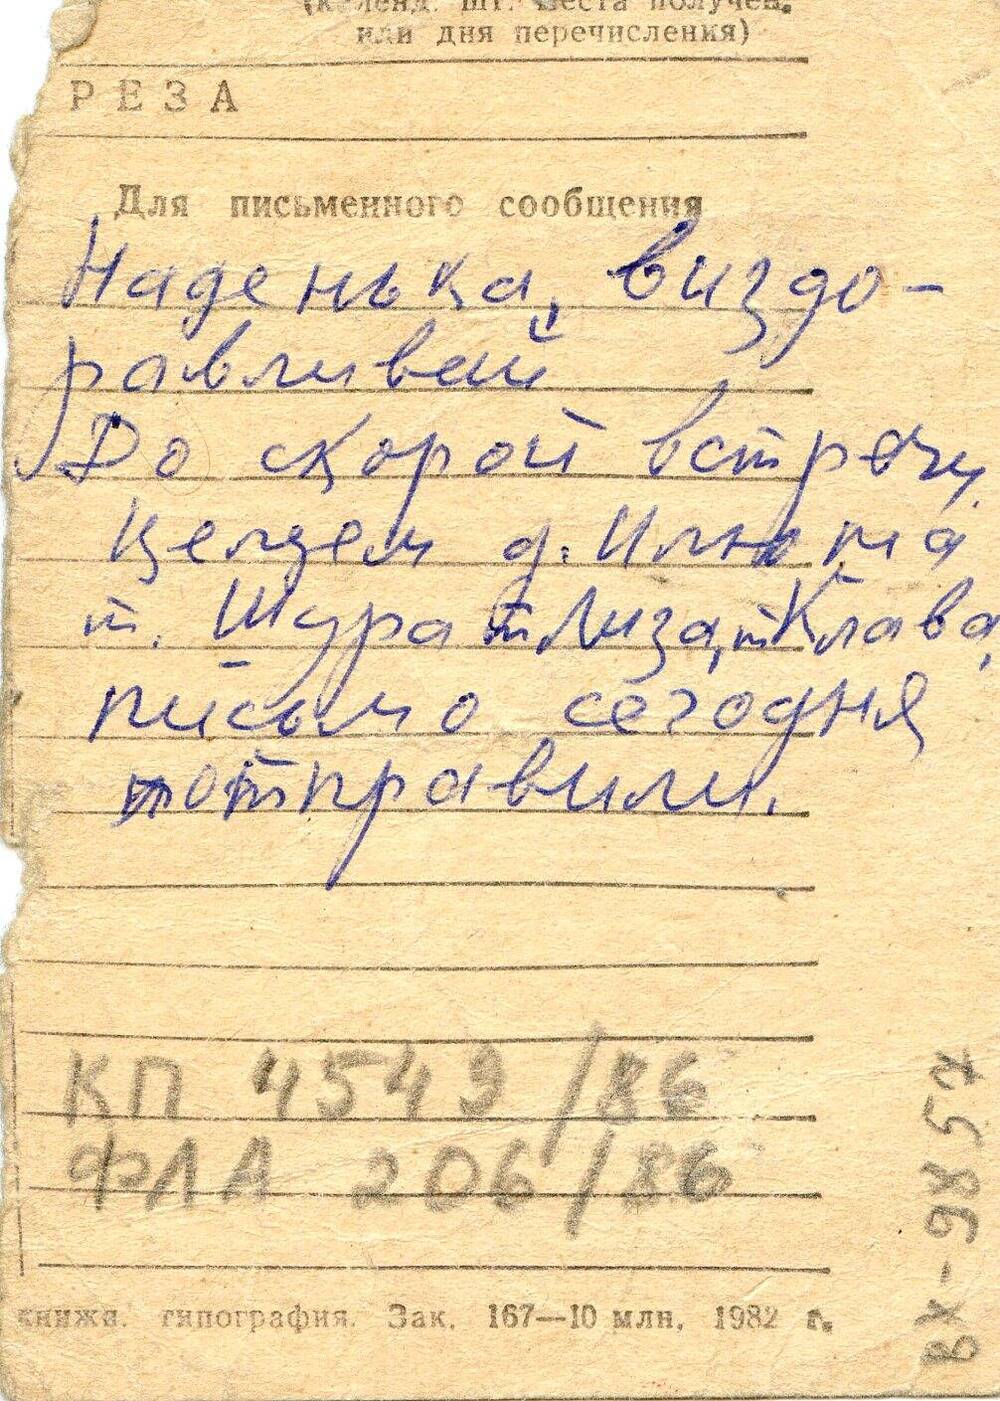 (календ. шт. места получен.
или дня перечисления)
РЕЗА
Для письменного сообщения
Наденька, виздо-
равливай
До скорой встречи,
Целуем д. Илюша
т. Шура т Лиза, т Клава,
письмо сегодня
отправили.
КП 4549/86
ФЛА 206/86
книжн. типография. Зак. 167—10 млн. 1982 г.
ВХ-9857